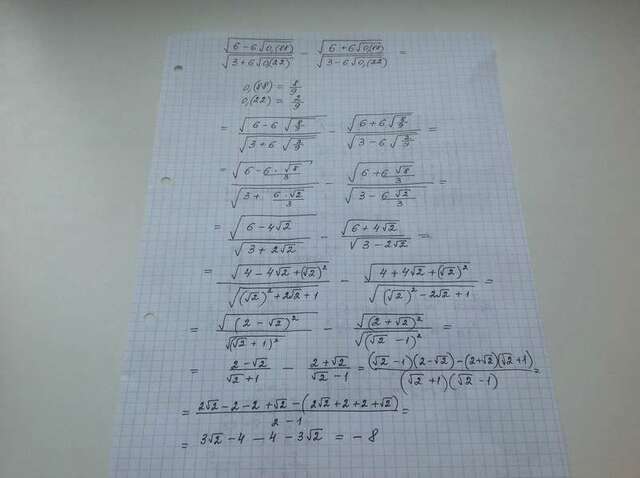 √(6 - 6√0,(88)) / √(3 + 6√0,(22)) - √(6 + 6√0,(88)) / √(3 - 6√0,(22)) =
0,(88) = 8/9
0,(22) = 2/9
= √(6 - 6√(8/9)) / √(3 + 6√(2/9)) - √(6 + 6√(8/9)) / √(3 - 6√(2/9)) =
= √(6 - 6·√8/3) / √(3 + 6·√2/3) - √(6 + 6√8/3) / √(3 - 6√2/3) =
= √(6 - 4√2) / √(3 + 2√2) - √(6 + 4√2) / √(3 - 2√2) =
= √(4 - 4√2 + (√2)²) / √((√2)² + 2√2 + 1) - √(4 + 4√2 + (√2)²) / √((√2)² - 2√2 + 1) =
= √((2 - √2)²) / √((√2 + 1)²) - √((2 + √2)²) / √((√2 - 1)²) =
= (2 - √2) / (√2 + 1) - (2 + √2) / (√2 - 1) = ((√2 - 1)(2 - √2) - (2 + √2)(√2 + 1)) / ((√2 + 1)(√2 - 1)) =
= (2√2 - 2 - 2 + √2 - (2√2 + 2 + 2 + √2)) / (2 - 1) =
= 3√2 - 4 - 4 - 3√2 = - 8